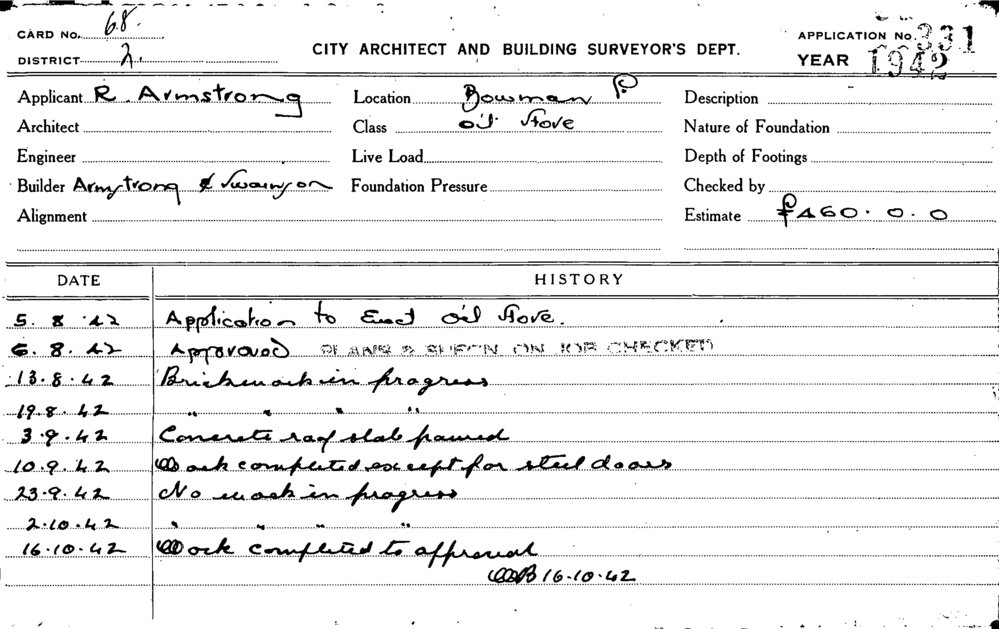 CARD No. 68.
APPLICATION No. 331
DISTRICT 2.
CITY ARCHITECT AND BUILDING SURVEYOR'S DEPT.
YEAR 1942
Applicant R. Armstrong
Location Bowman
Description
Architect
Class Oil Store
Nature of Foundation
Engineer
Live Load
Depth of Footings
Builder Armstrong & Swainson
Foundation Pressure
Checked by
Alignment
Estimate £460.0.0
DATE HISTORY
5.8.42 Application to Erect Oil Store.
6.8.42 Approved PLANS & SPEC'N ON JOB CHECKED
13.8.42 Brickwork in progress
19.8.42 " " " "
3.9.42 Concrete roof slab poured
10.9.42 Work completed except for steel doors
23.9.42 No work in progress
2.10.42 " " " "
16.10.42 Work completed to approval
16.10.42